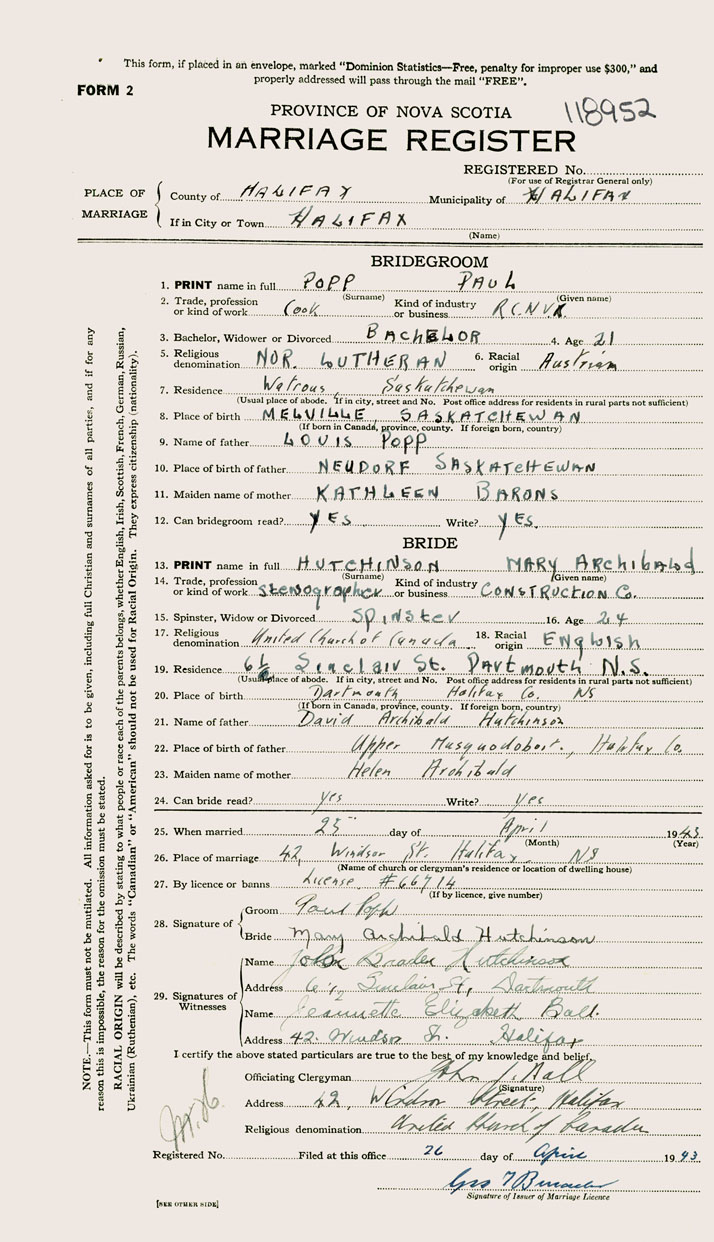 This form, if placed in an envelope, marked "Dominion Statistics—Free, penalty for improper use $300," and
properly addressed will pass through the mail "FREE".
FORM 2
PROVINCE OF NOVA SCOTIA
118952
MARRIAGE REGISTER
REGISTERED No.
(For use of Registrar General only)
PLACE OF MARRIAGE
County of HALIFAX Municipality of HALIFAX
If in City or Town HALIFAX
(Name)
BRIDEGROOM
1. PRINT name in full POPP PAUL
(Surname) (Given name)
2. Trade, profession or kind of work Cook Kind of industry or business R.C.N.V.R.
3. Bachelor, Widower or Divorced BACHELOR 4. Age 21
5. Religious denomination NOR. LUTHERAN 6. Racial origin Austrian
7. Residence Watrous, Saskatchewan
(Usual place of abode. If in city, street and No. Post office address for residents in rural parts not sufficient)
8. Place of birth MELVILLE, SASKATCHEWAN
(If born in Canada, province, county. If foreign born, country)
9. Name of father LOUIS POPP
10. Place of birth of father NEUDORF SASKATCHEWAN
11. Maiden name of mother KATHLEEN BARONS
12. Can bridegroom read? YES Write? YES.
BRIDE
13. PRINT name in full HUTCHINSON MARY ARCHIBALD
(Surname) (Given name)
14. Trade, profession or kind of work Stenographer Kind of industry or business CONSTRUCTION Co.
15. Spinster, Widow or Divorced SPINSTER 16. Age 24
17. Religious denomination United Church of Canada 18. Racial origin ENGLISH
19. Residence Sinclair St. DARTMOUTH N.S.
(Usual place of abode. If in city, street and No. Post office address for residents in rural parts not sufficient)
20. Place of birth Dartmouth, Halifax Co. NS
(If born in Canada, province, county. If foreign born, country)
21. Name of father David Archibald Hutchinson
22. Place of birth of father Upper Musquodoboit, Halifax Co.
23. Maiden name of mother Helen Archibald
24. Can bride read? yes Write? yes
25. When married 25 day of April 1943
(Month) (Year)
26. Place of marriage 42, Windsor St. Halifax, NS
(Name of church or clergyman's residence or location of dwelling house)
27. By licence or banns License #66714
(If by licence, give number)
28. Signature of
Groom Paul Popp
Bride Mary Archibald Hutchinson
29. Signatures of Witnesses
Name John Hutchinson
Address Sinclair St, Dartmouth
Name Jeannette Elizabeth Ball.
Address 42. Windsor St. Halifax
I certify the above stated particulars are true to the best of my knowledge and belief.
Officiating Clergyman John
(Signature)
Address 42, Windsor Street, Halifax
Religious denomination United Church of Canada
Registered No. Filed at this office 26 day of April 1943
Signature of Issuer of Marriage Licence
[SEE OTHER SIDE]
NOTE.—This form must not be mutilated. All information asked for is to be given, including full Christian and surnames of all parties, and if for any
reason this is impossible, the reason for the omission must be stated.
RACIAL ORIGIN will be described by stating to what people or race each of the parents belongs, whether English, Irish, Scottish, French, German, Russian,
Ukrainian (Ruthenian), etc. The words "Canadian" or "American" should not be used for Racial Origin. They express citizenship (nationality).